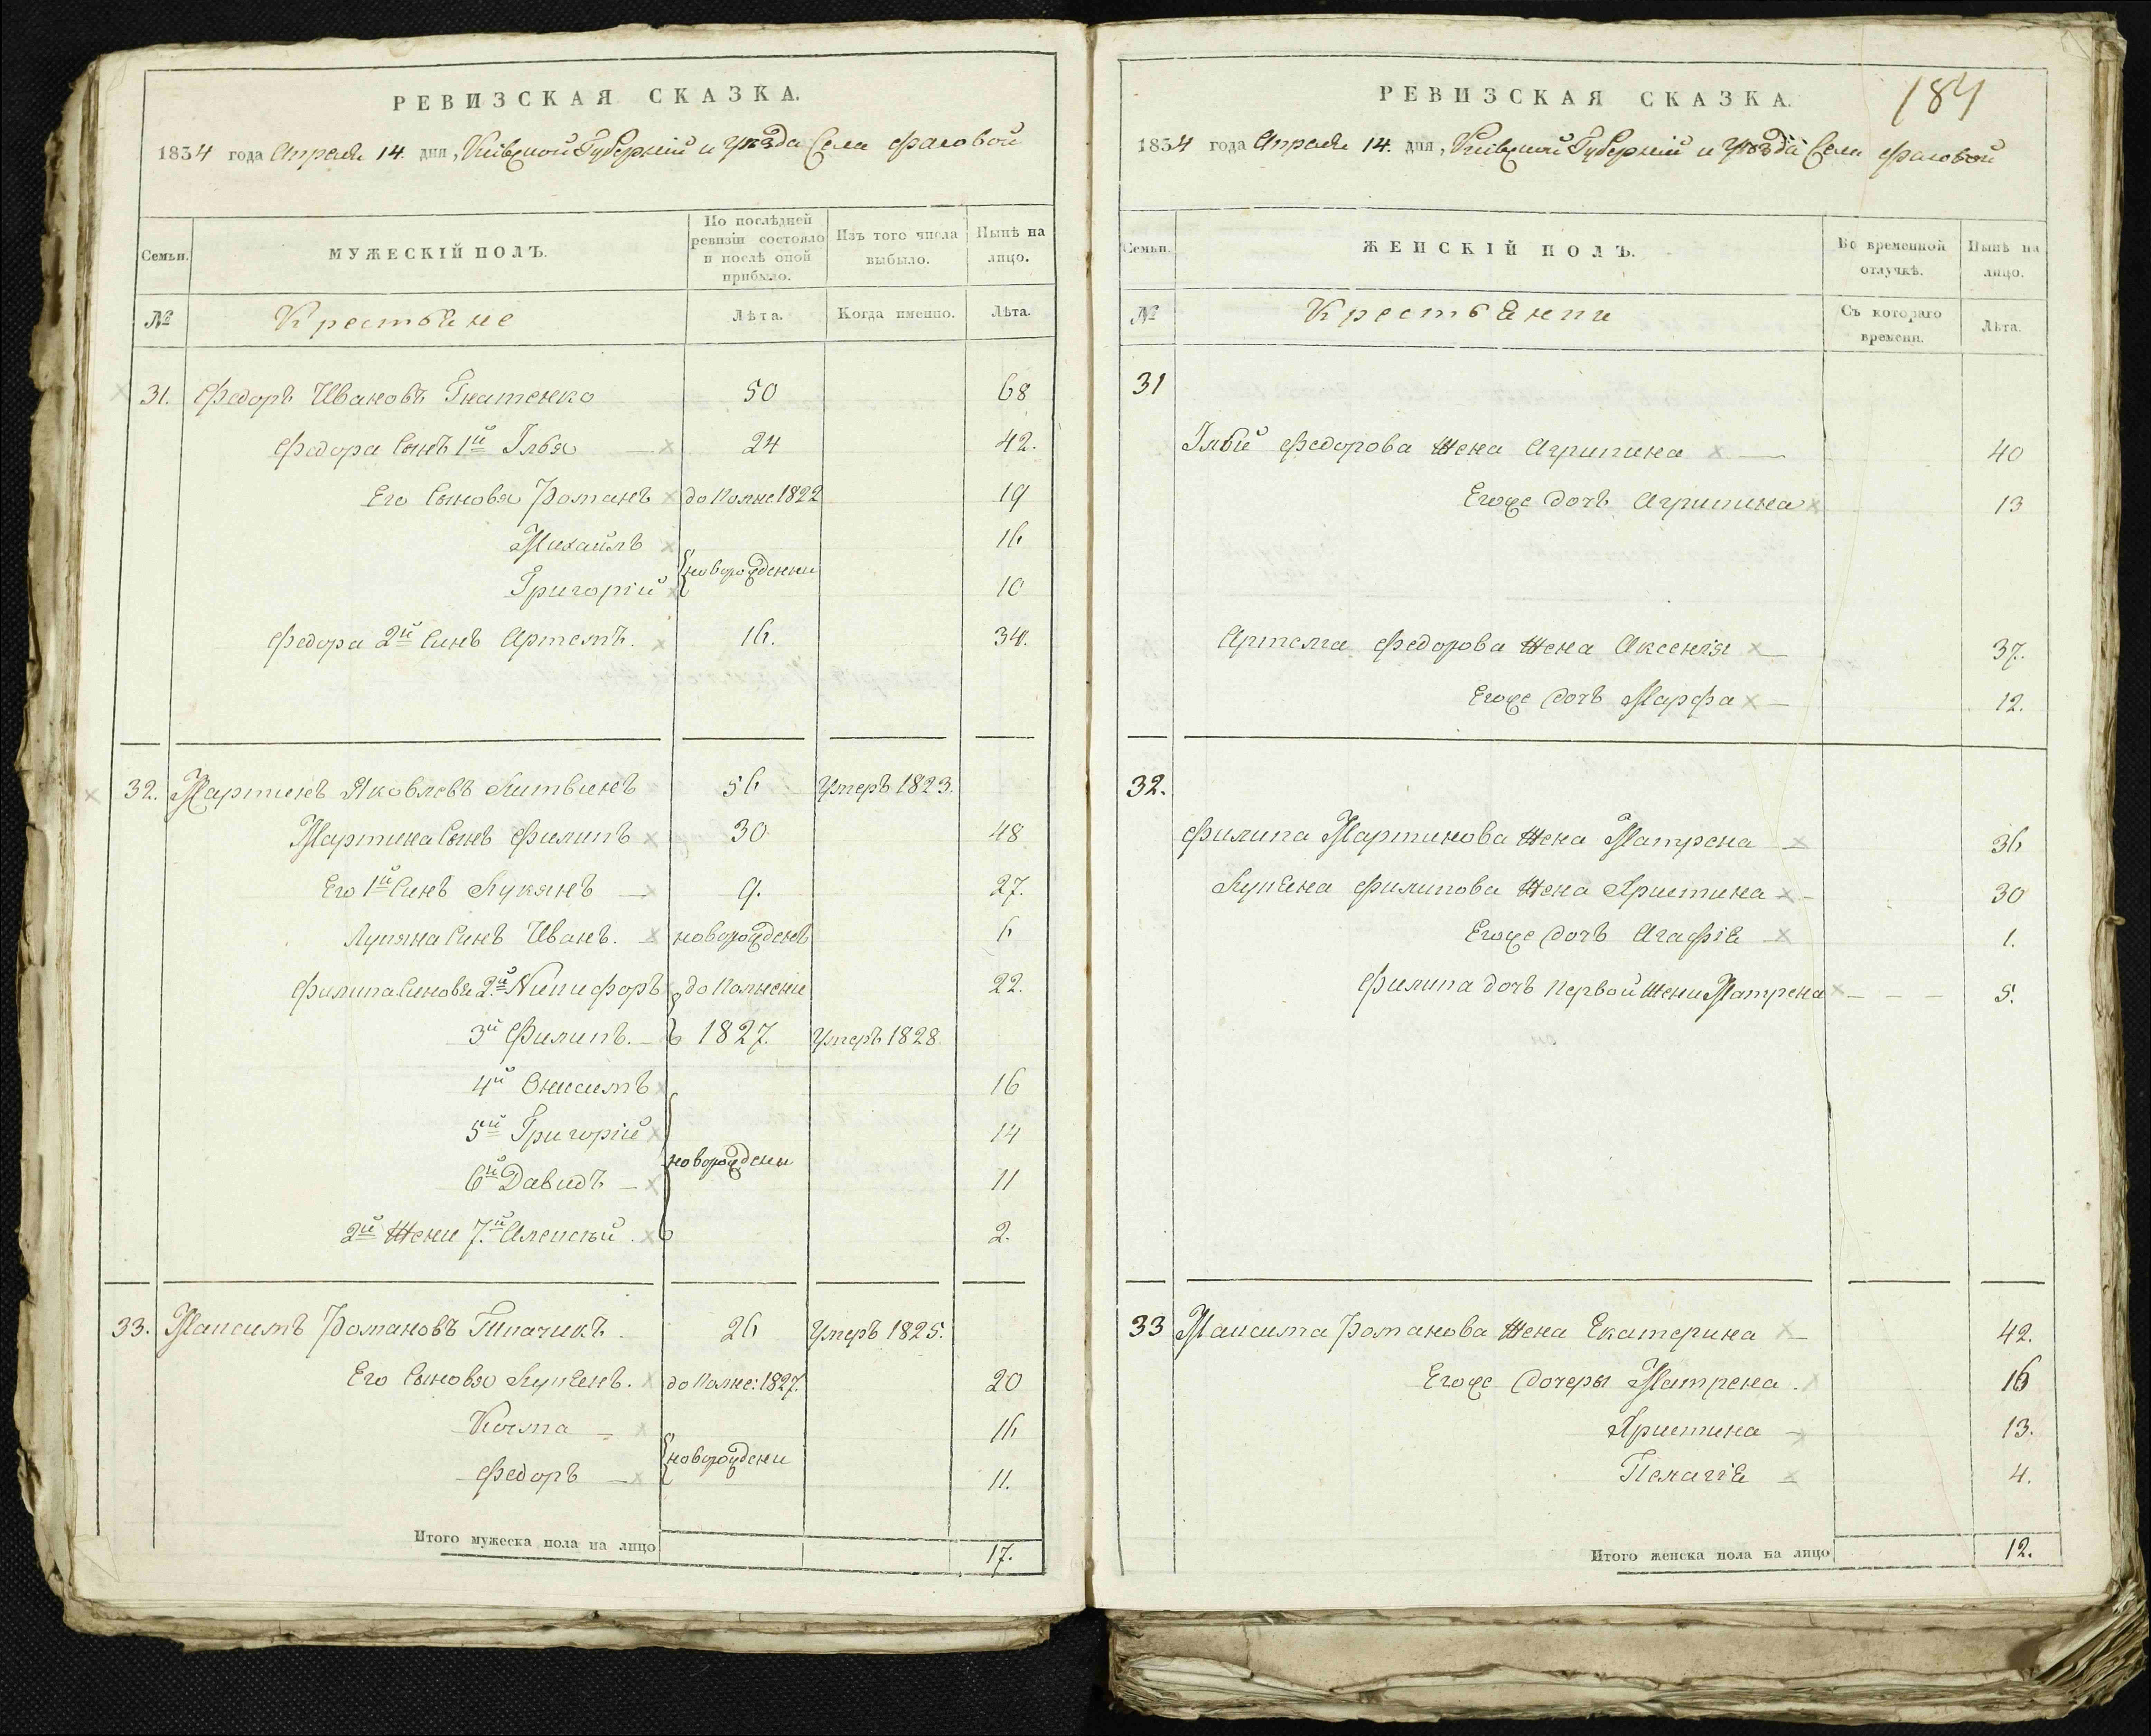 РЕВИЗСКАЯ СКАЗКА.
1834 года Апреля 14. дня, Кіевской Губерніи и Уезда Села Фасовой
Семьи. МУЖЕСКІЙ ПОЛЪ. По послѣдней ревизіи состояло и послѣ оной прибыло. Изъ того числа выбыло. Нынѣ на лицо.
№ Крестьяне Лѣта. Когда именно. Лѣта.
31. Федоръ Ивановъ Гнатенко 50 68
Федора Сынъ 1й Ілья 24 42.
Его Сыновья Романъ до Полне 1822 19
Михаилъ 16
новорожденни
Григорій 10
Федора 2й Синъ Артемъ. 16. 34.
32. Мартинъ Яковлевъ Литвинъ 56 Умеръ 1823.
Мартина Сынъ Филипъ 30 48
Его 1й Синъ Лукянъ 9. 27.
Лукяна Синъ Иванъ. новорожденъ 6
Филипа Синовья 2й Никифоръ до Полнение 22.
3й Филипъ. 1827. Умеръ 1828.
4й Онисимъ 16
5й Григорій 14
новорождени
6й Давидъ 11
2й Жени 7й Алексѣй. 2.
33. Максимъ Романовъ Ткачикъ. 26 Умеръ 1825.
Его Сыновья Лукянъ. до Полне: 1827. 20
Косма 16
новорождени
Федоръ 11.
Итого мужеска пола на лицо 17.
184
РЕВИЗСКАЯ СКАЗКА.
1834 года Апреля 14. дня, Кіевской Губерніи и Уезда Села Фасовой
Семьи. ЖЕНСКІЙ ПОЛЪ. Во временной отлучкѣ. Нынѣ на лицо.
№ Крестьянки Съ котораго времени. Лѣта.
31
Ілыи Федорова Жена Агрипина 40
Егоже дочь Агрипина 13
Артема Федорова Жена Аксенія 37.
Егоже дочь Марфа 12.
32.
Филипа Мартинова Жена Матрена 36
Лукяна Филипова Жена Христина 30
Егоже дочь Агафія 1.
Филипа дочь Первой Жени Матрена 5.
33 Максима Романова Жена Екатерина 42.
Егоже дочеры Матрена. 16
Христина 13.
Пелагія 4.
Итого женска пола на лицо 12.